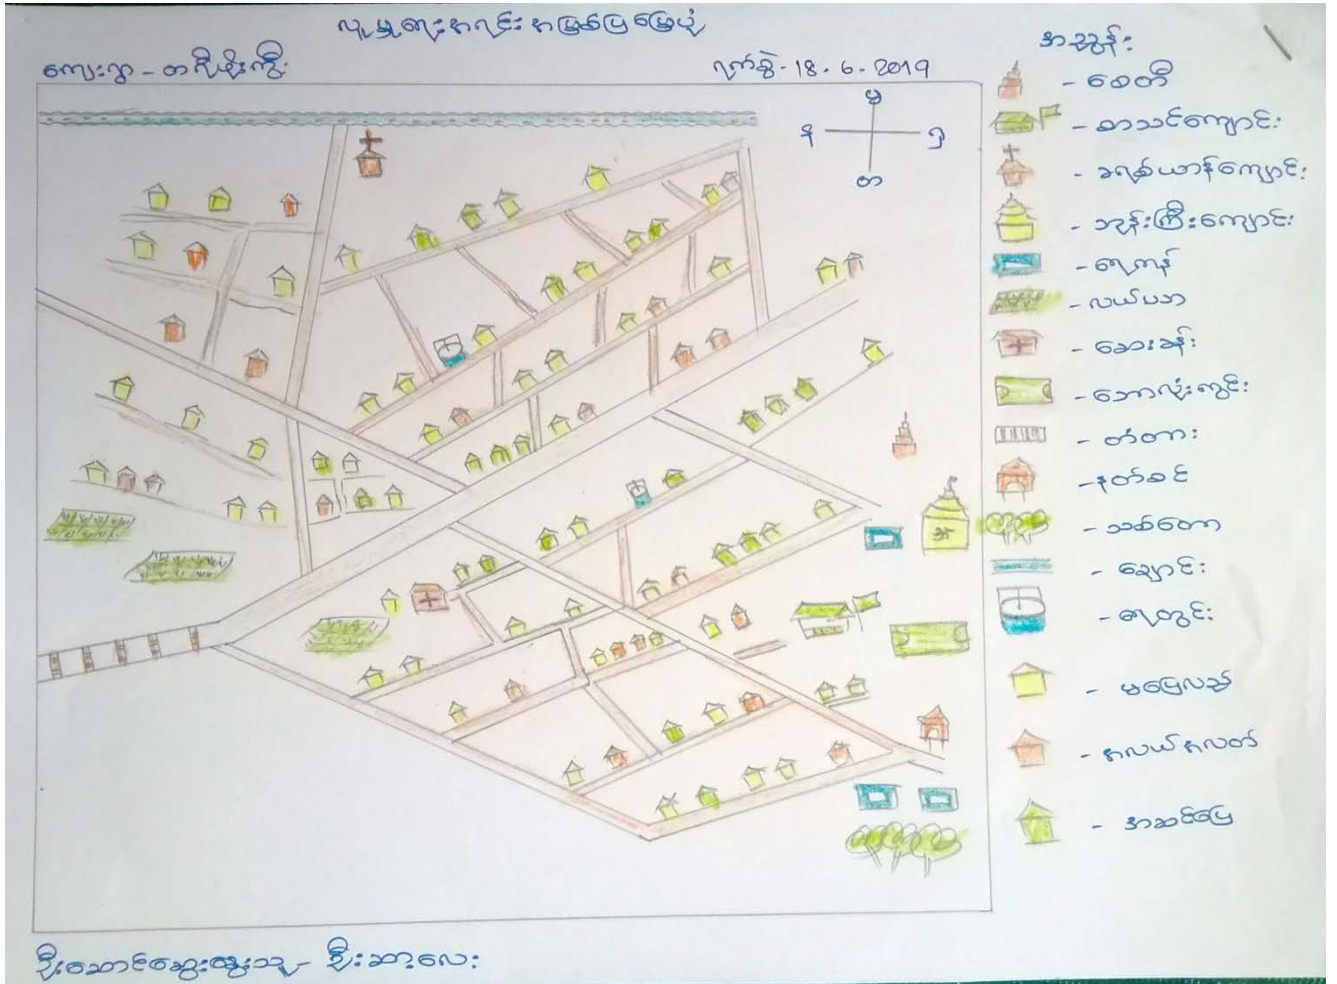 လူမှုရေးအရင်းအမြစ်ပြမြေပုံ
ကျေးရွာ - တဂီမျိုးကြီး
ရက်စွဲ - 18 . 6 . 2019
မ
န
ဒ
တ
အညွှန်း
- စေတီ
- စာသင်ကျောင်း
- ခရစ်ယာန်ကျောင်း
- ဘုန်းကြီးကျောင်း
- ရေကန်
- လယ်ယာ
- ဆေးခန်း
- ဘောလုံးကွင်း
- တံတား
- နတ်စင်
- သစ်တော
- ချောင်း
- ရေတွင်း
- မပြေလည်
- အလယ်အလတ်
- အဆင်ပြေ
ဦးဆောင်ဆွေးနွေးသူ - ဦးဆာလေး